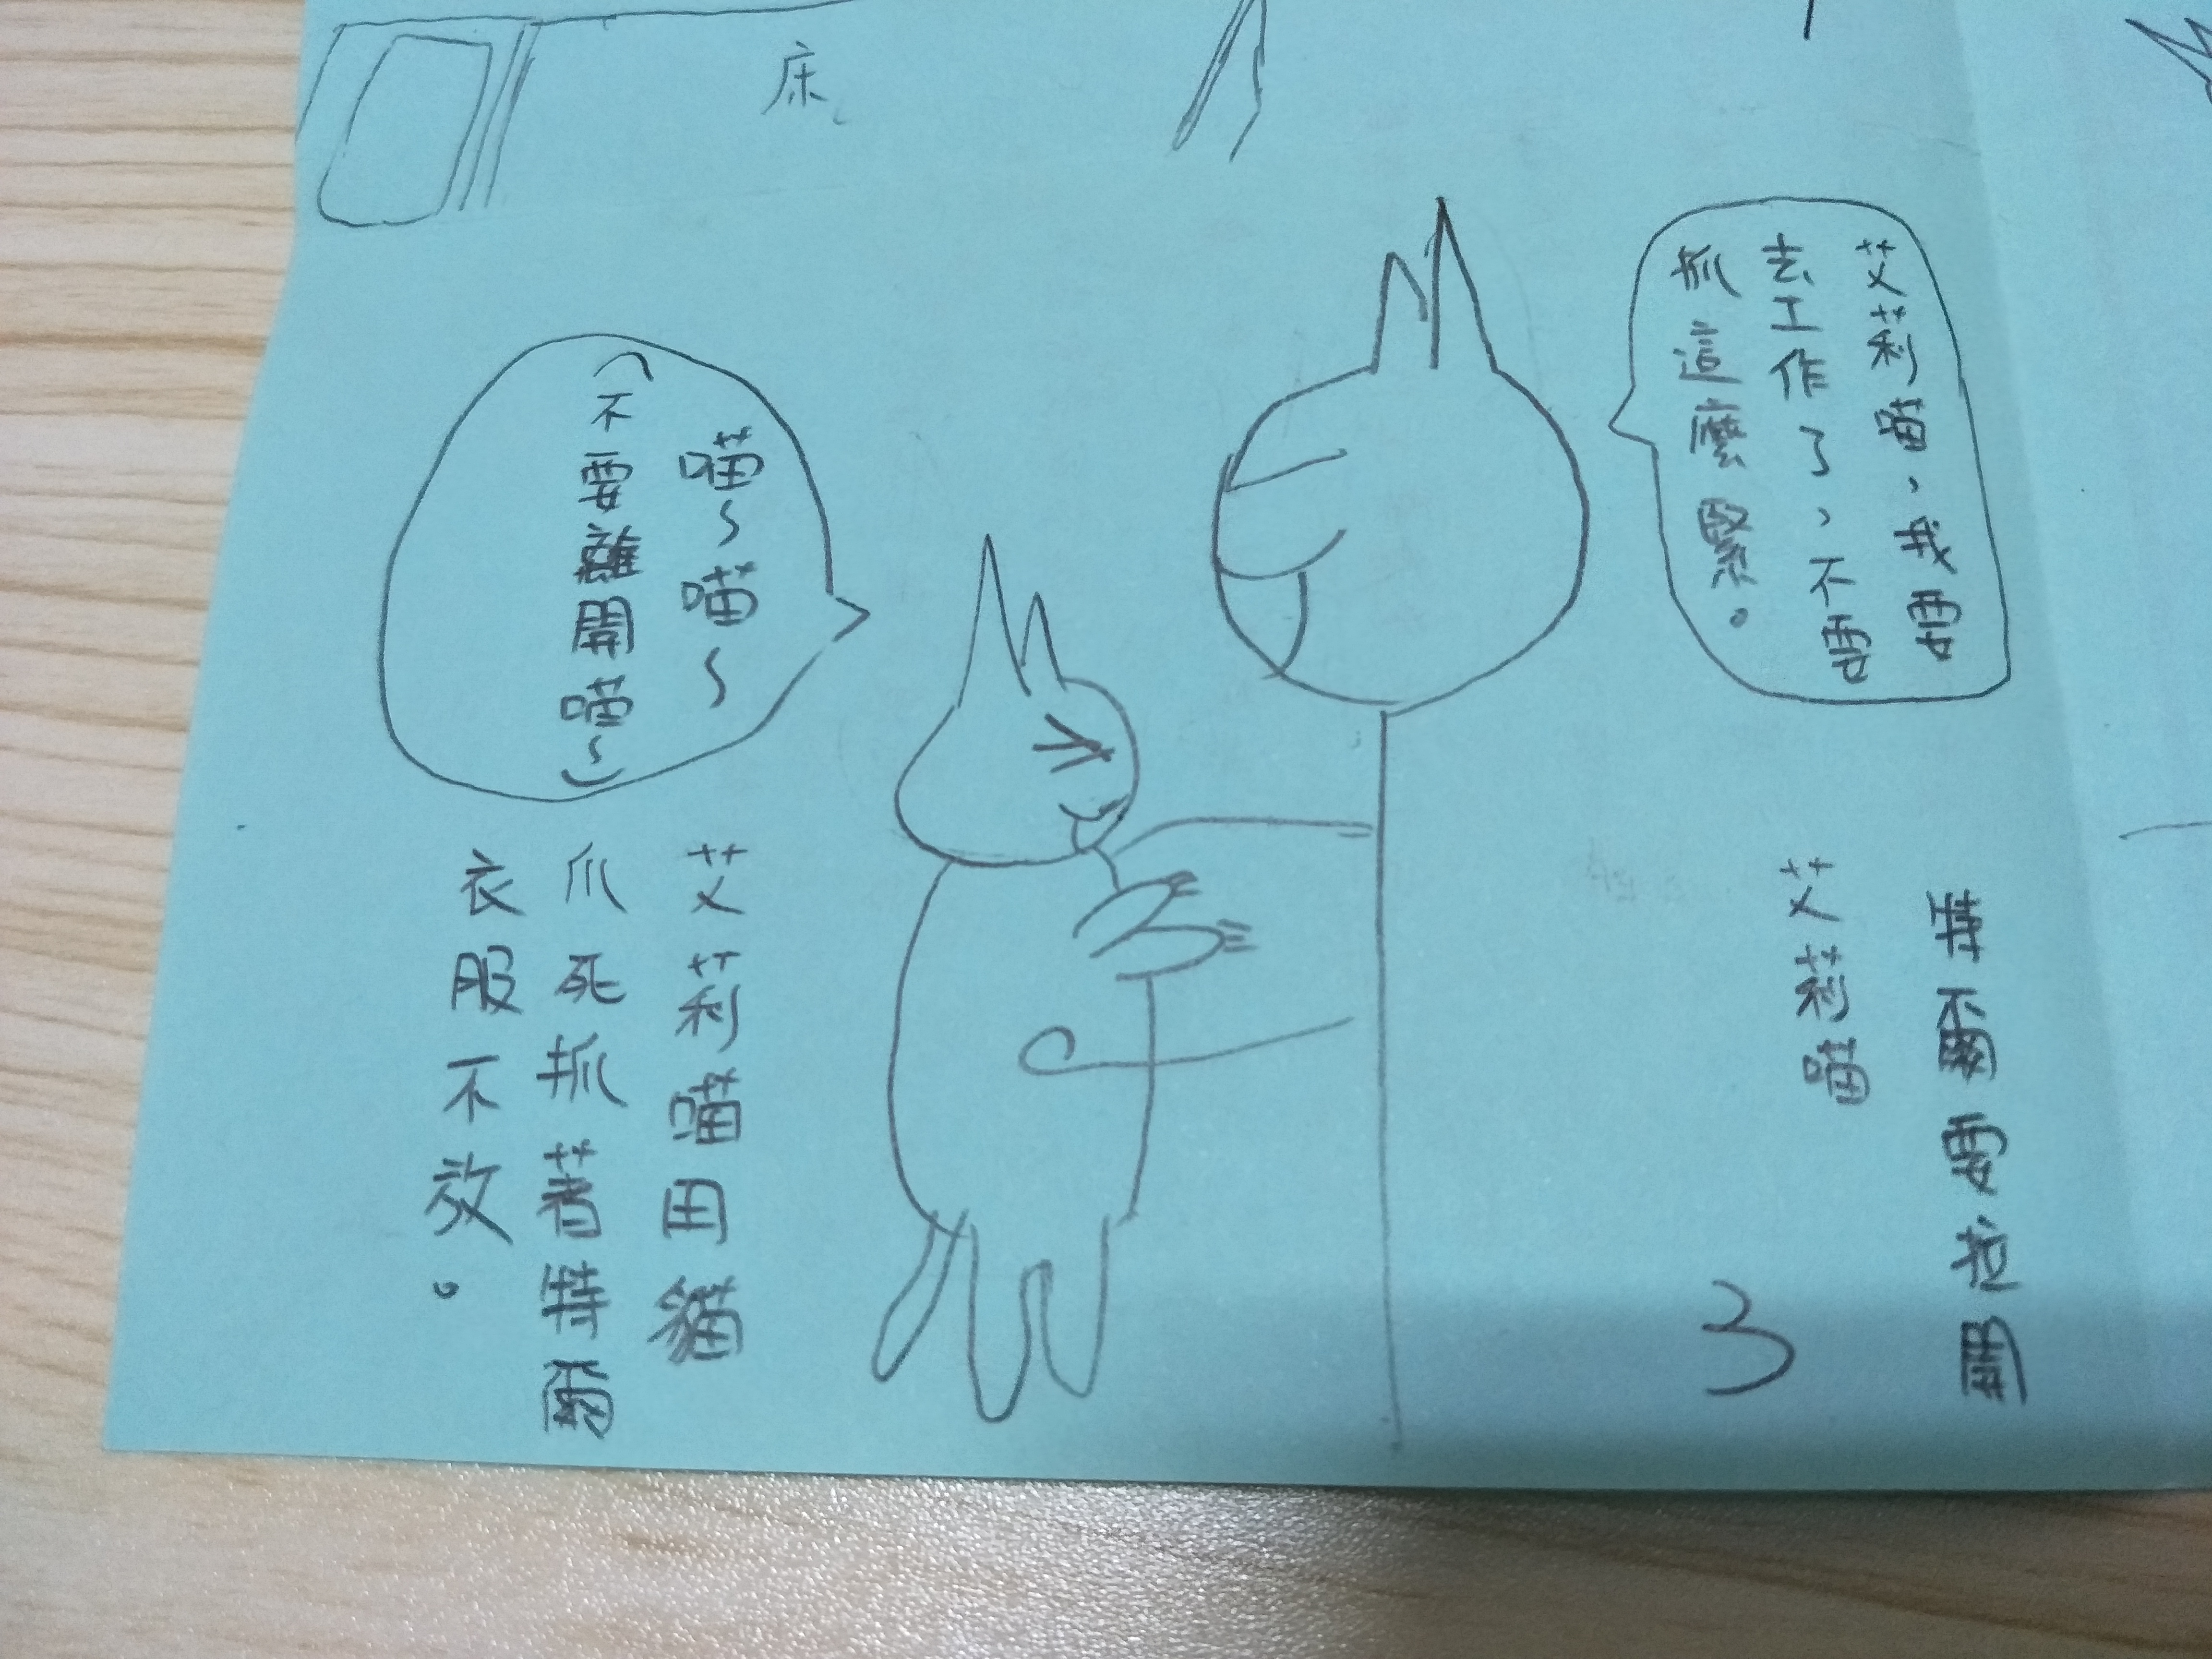 床
艾莉喵，我要
去工作了，不要
抓這麼緊。
喵～喵～
（不要離開喵～）
爾要拉開
艾莉喵
3
艾莉喵田貓
爪死抓著特爾
衣服不效。